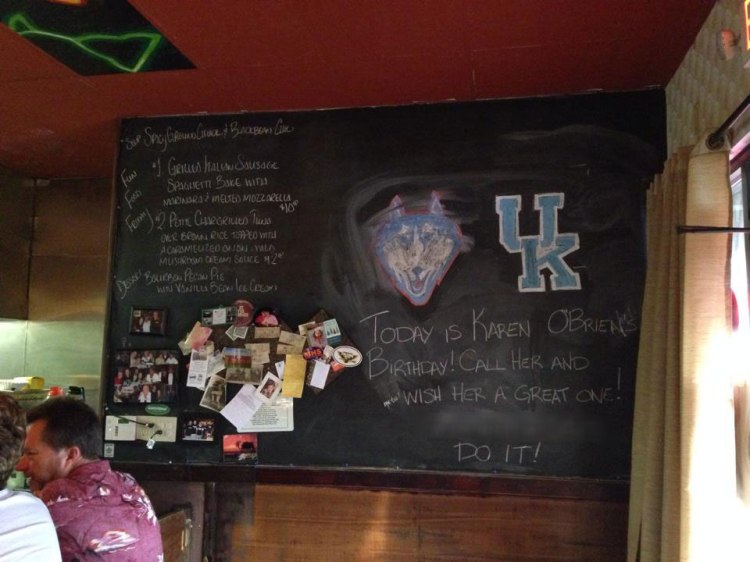 Soup Spicy Ground Chuck & Blackbean Chili
Fun
Food
Friday
#1 Grilled Italian Sausage
Spaghetti Bake with
Marinara & Melted Mozzarella
#2 Petite Chargrilled Tuna
over Brown Rice topped with
a Caramelized Onion
Mushroom Cream Sauce
Bourbon Pecan Pie
with Vanilla Bean Ice Cream
UK
Today is Karen O'Brien's
Birthday! Call Her and
wish her a great one!
Do it!